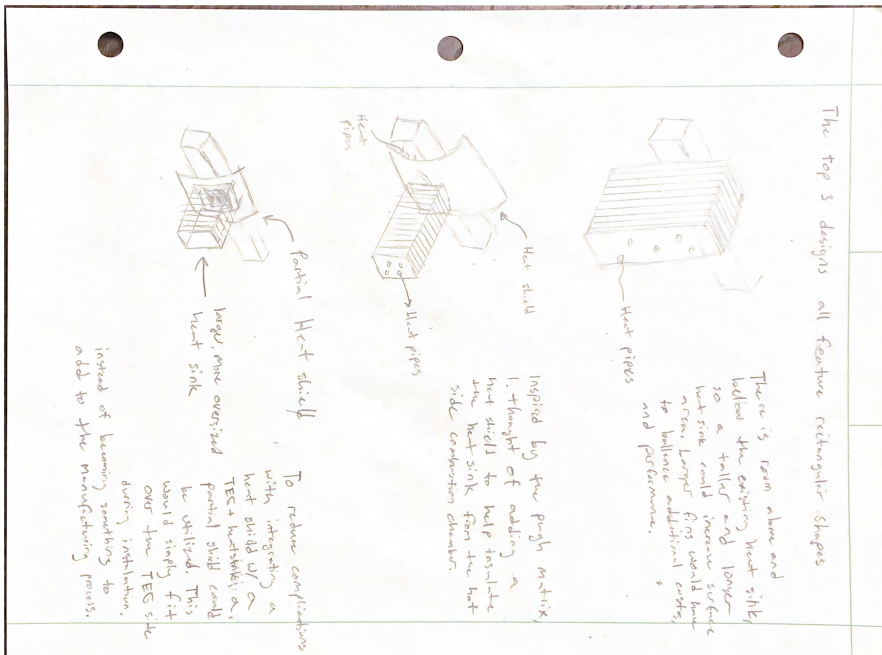 The top 3 designs all feature rectangular shapes
Heat pipes
There is room above and
below the existing heat sink,
so a taller and longer
heat sink could increase surface
area. Larger fins would have
to ballence additional costs,
and performance.
Heat
pipes
Heat shield
Heat pipes
Inspired by the pugh matrix,
I thought of adding a
heat shield to help insulate
the heat sink from the hot
side combustion chamber.
Partial Heat shield
larger, more oversized
heat sink
To reduce complications
with integrating a
heat shield w/ a
TEC + heatsink; a
partial shield could
be utilized. This
would simply fit
over the TEG side
during installation,
instead of becoming something to
add to the manufacturing process.